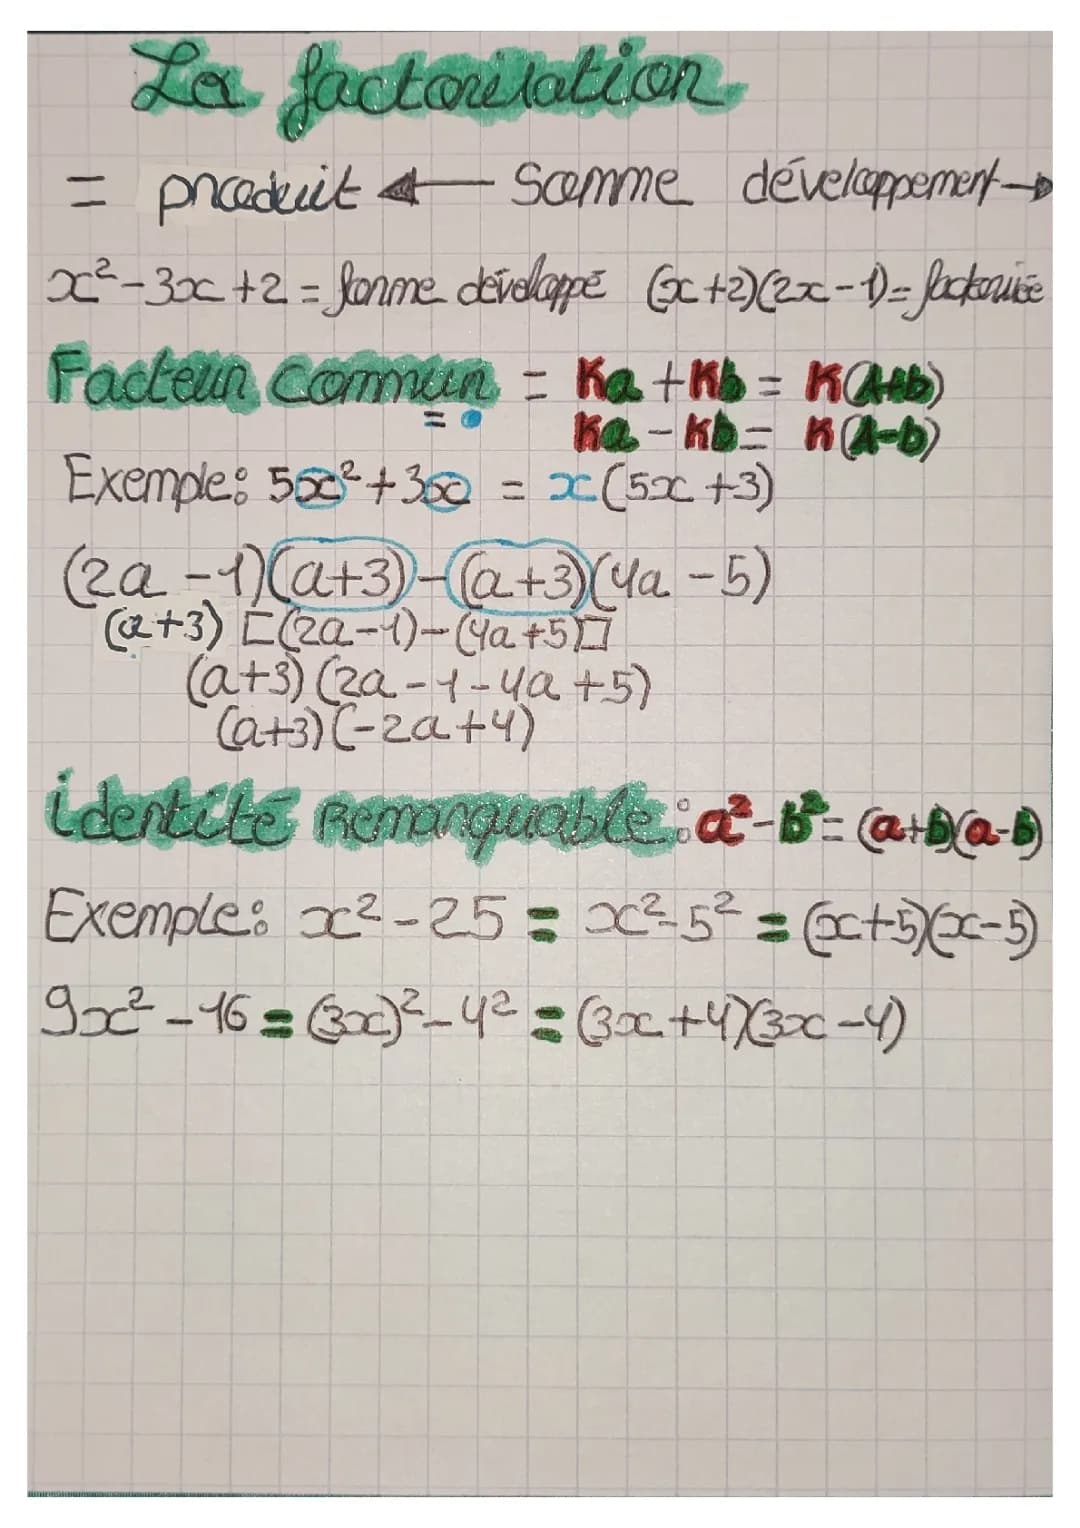 La factorisation
= produit ← Somme développement →
x² - 3x + 2 = forme développé (x+2)(2x-1) = factorisée
Facteur Commun = Ka + Kb = K(A+b)
= Ka - Kb = K(A-b)
Exemple: 5x² + 3x = x(5x +3)
(2a -1)(a+3) - (a+3)(4a -5)
(a+3) [(2a-1)-(4a+5)]
(a+3)(2a-1-4a+5)
(a+3)(-2a+4)
identité Remarquable : a² - b² = (a+b)(a-b)
Exemple: x² - 25 = x² - 5² = (x+5)(x-5)
9x² - 16 = (3x)² - 4² = (3x +4)(3x -4)